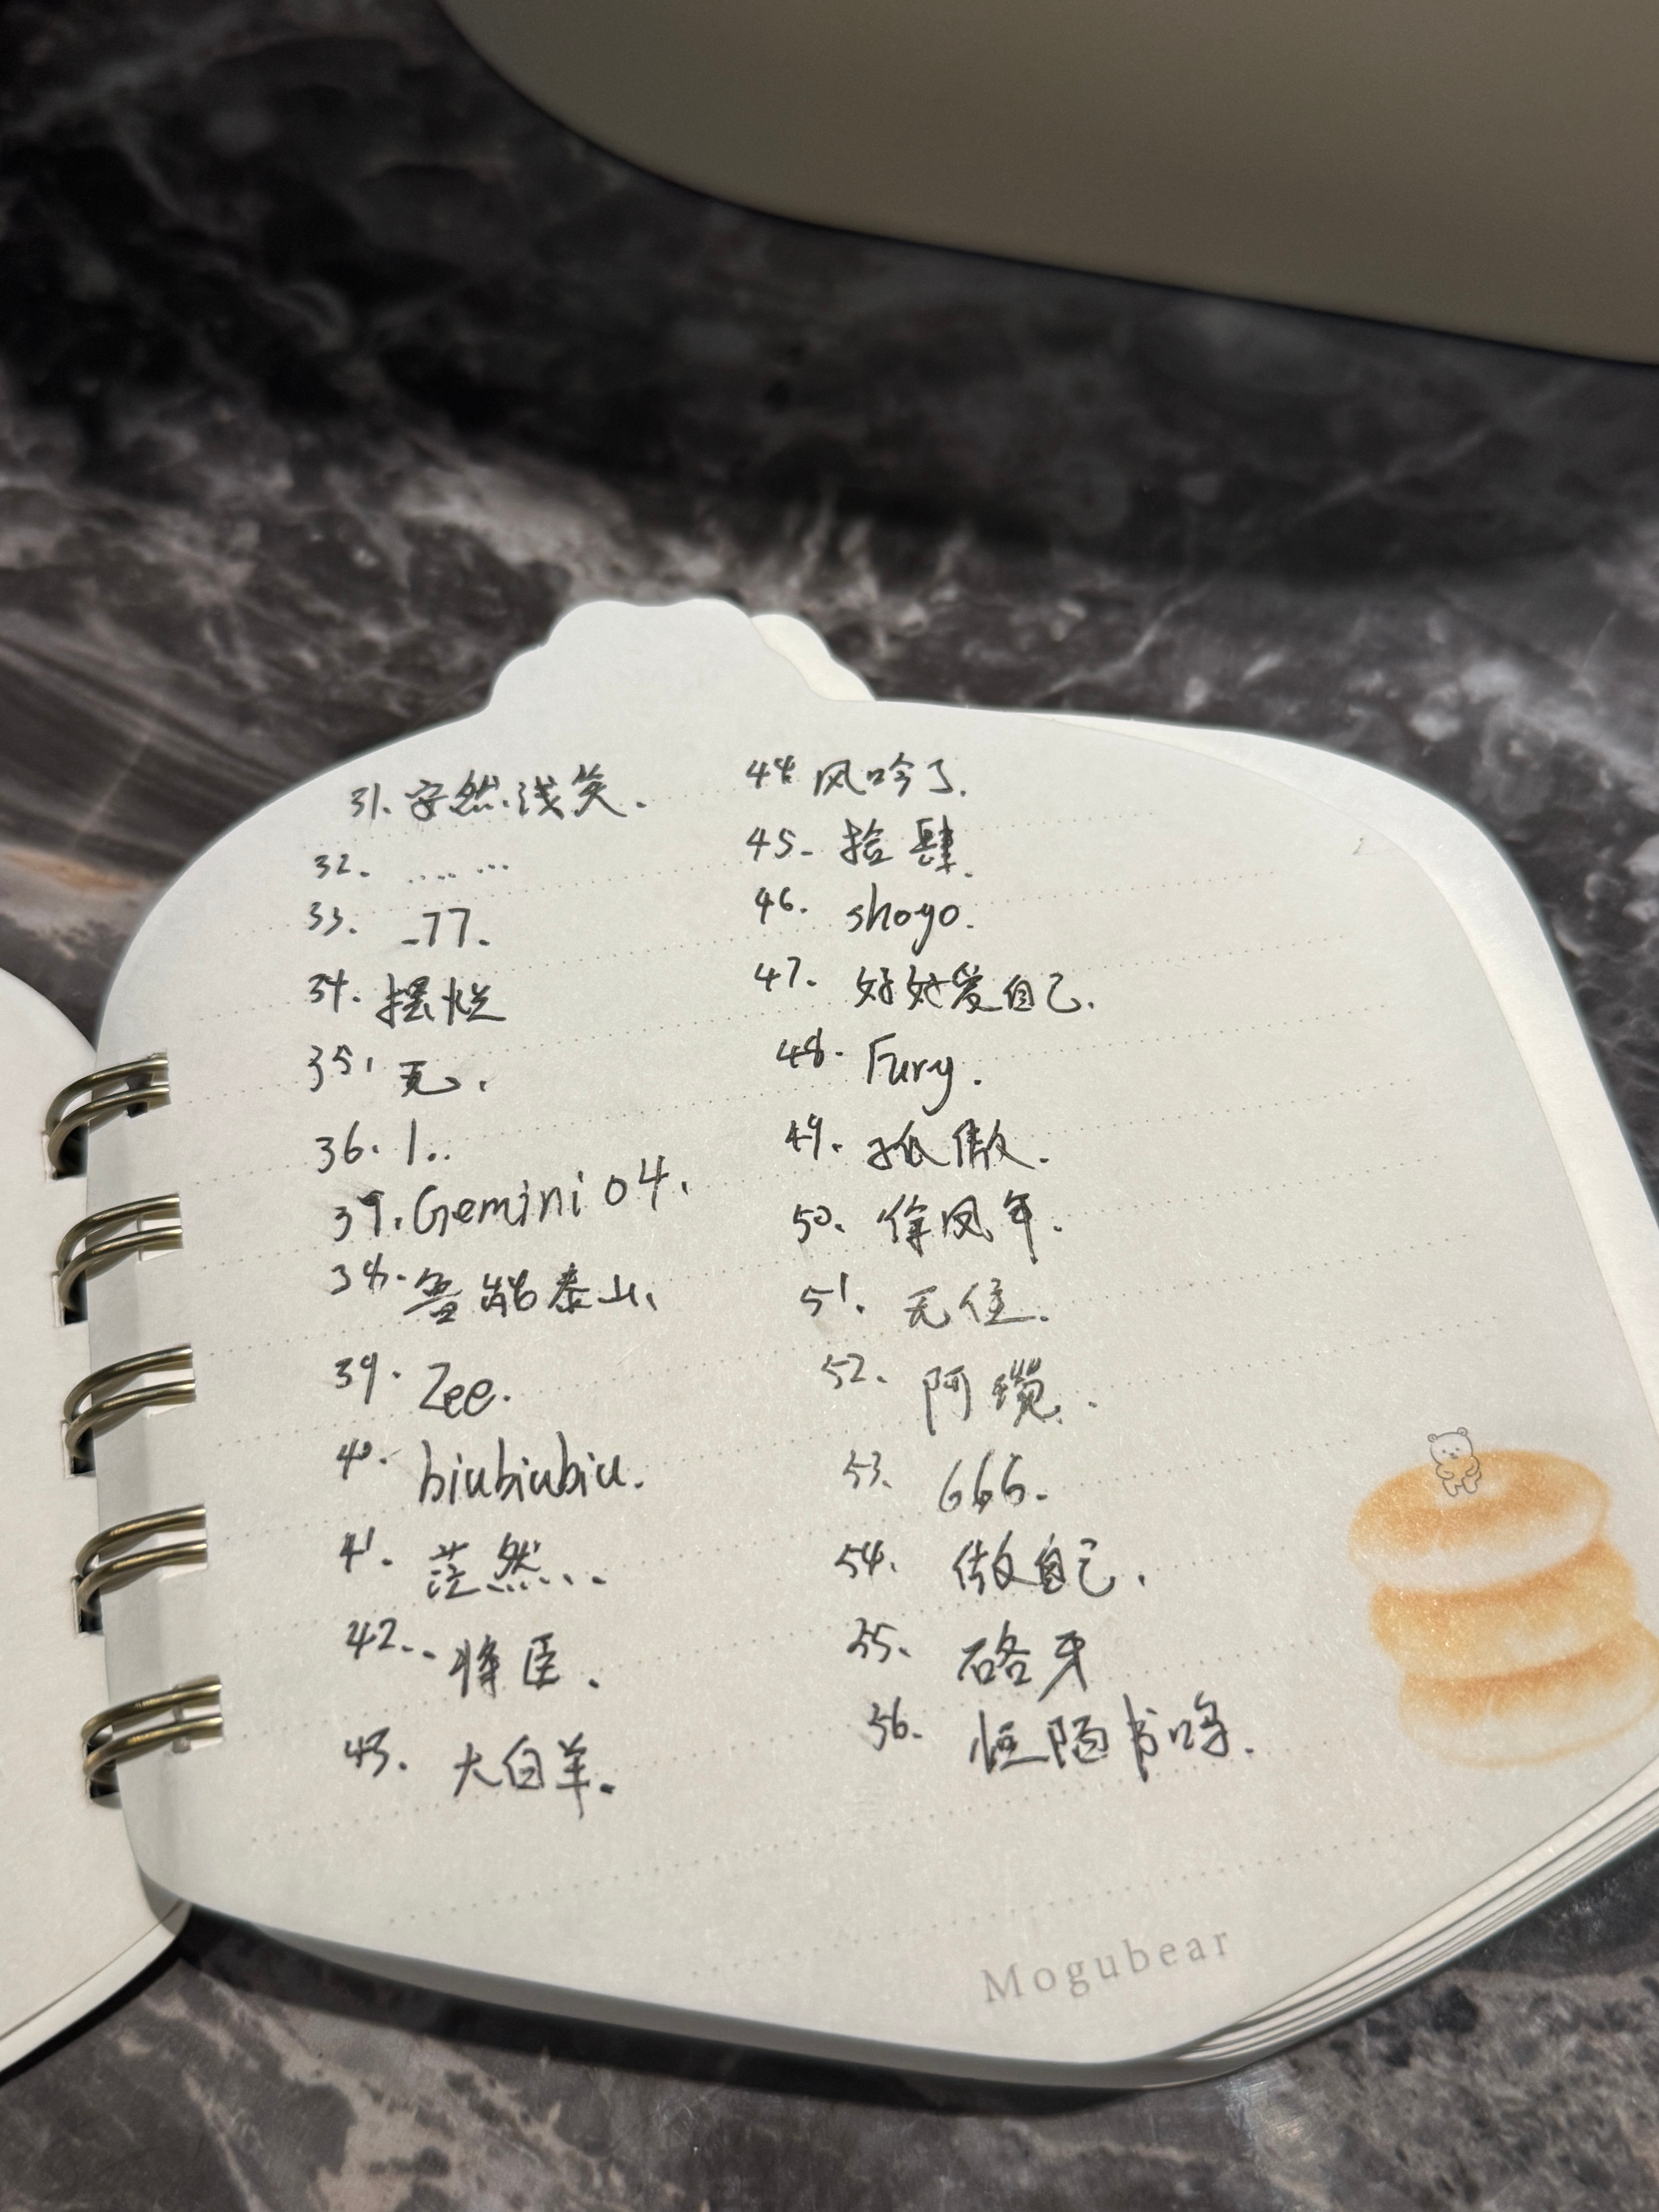 31. 安然浅笑.
32. ……
33. -77.
34. 摆烂
35. 无.
36. 1..
37. Gemini 04.
38. 鲁能泰山.
39. Zee.
40. biubiubiu.
41. 茫然...
42. 将臣.
43. 大白羊.
44. 风吟了.
45. 拾肆.
46. shogo.
47. 好好爱自己.
48. Fury.
49. 孤傲.
50. 徐凤年.
51. 无住.
52. 阿
53. 666.
54. 做自己.
55. 硌牙
56. 恒陌书鸣.
Mogubear